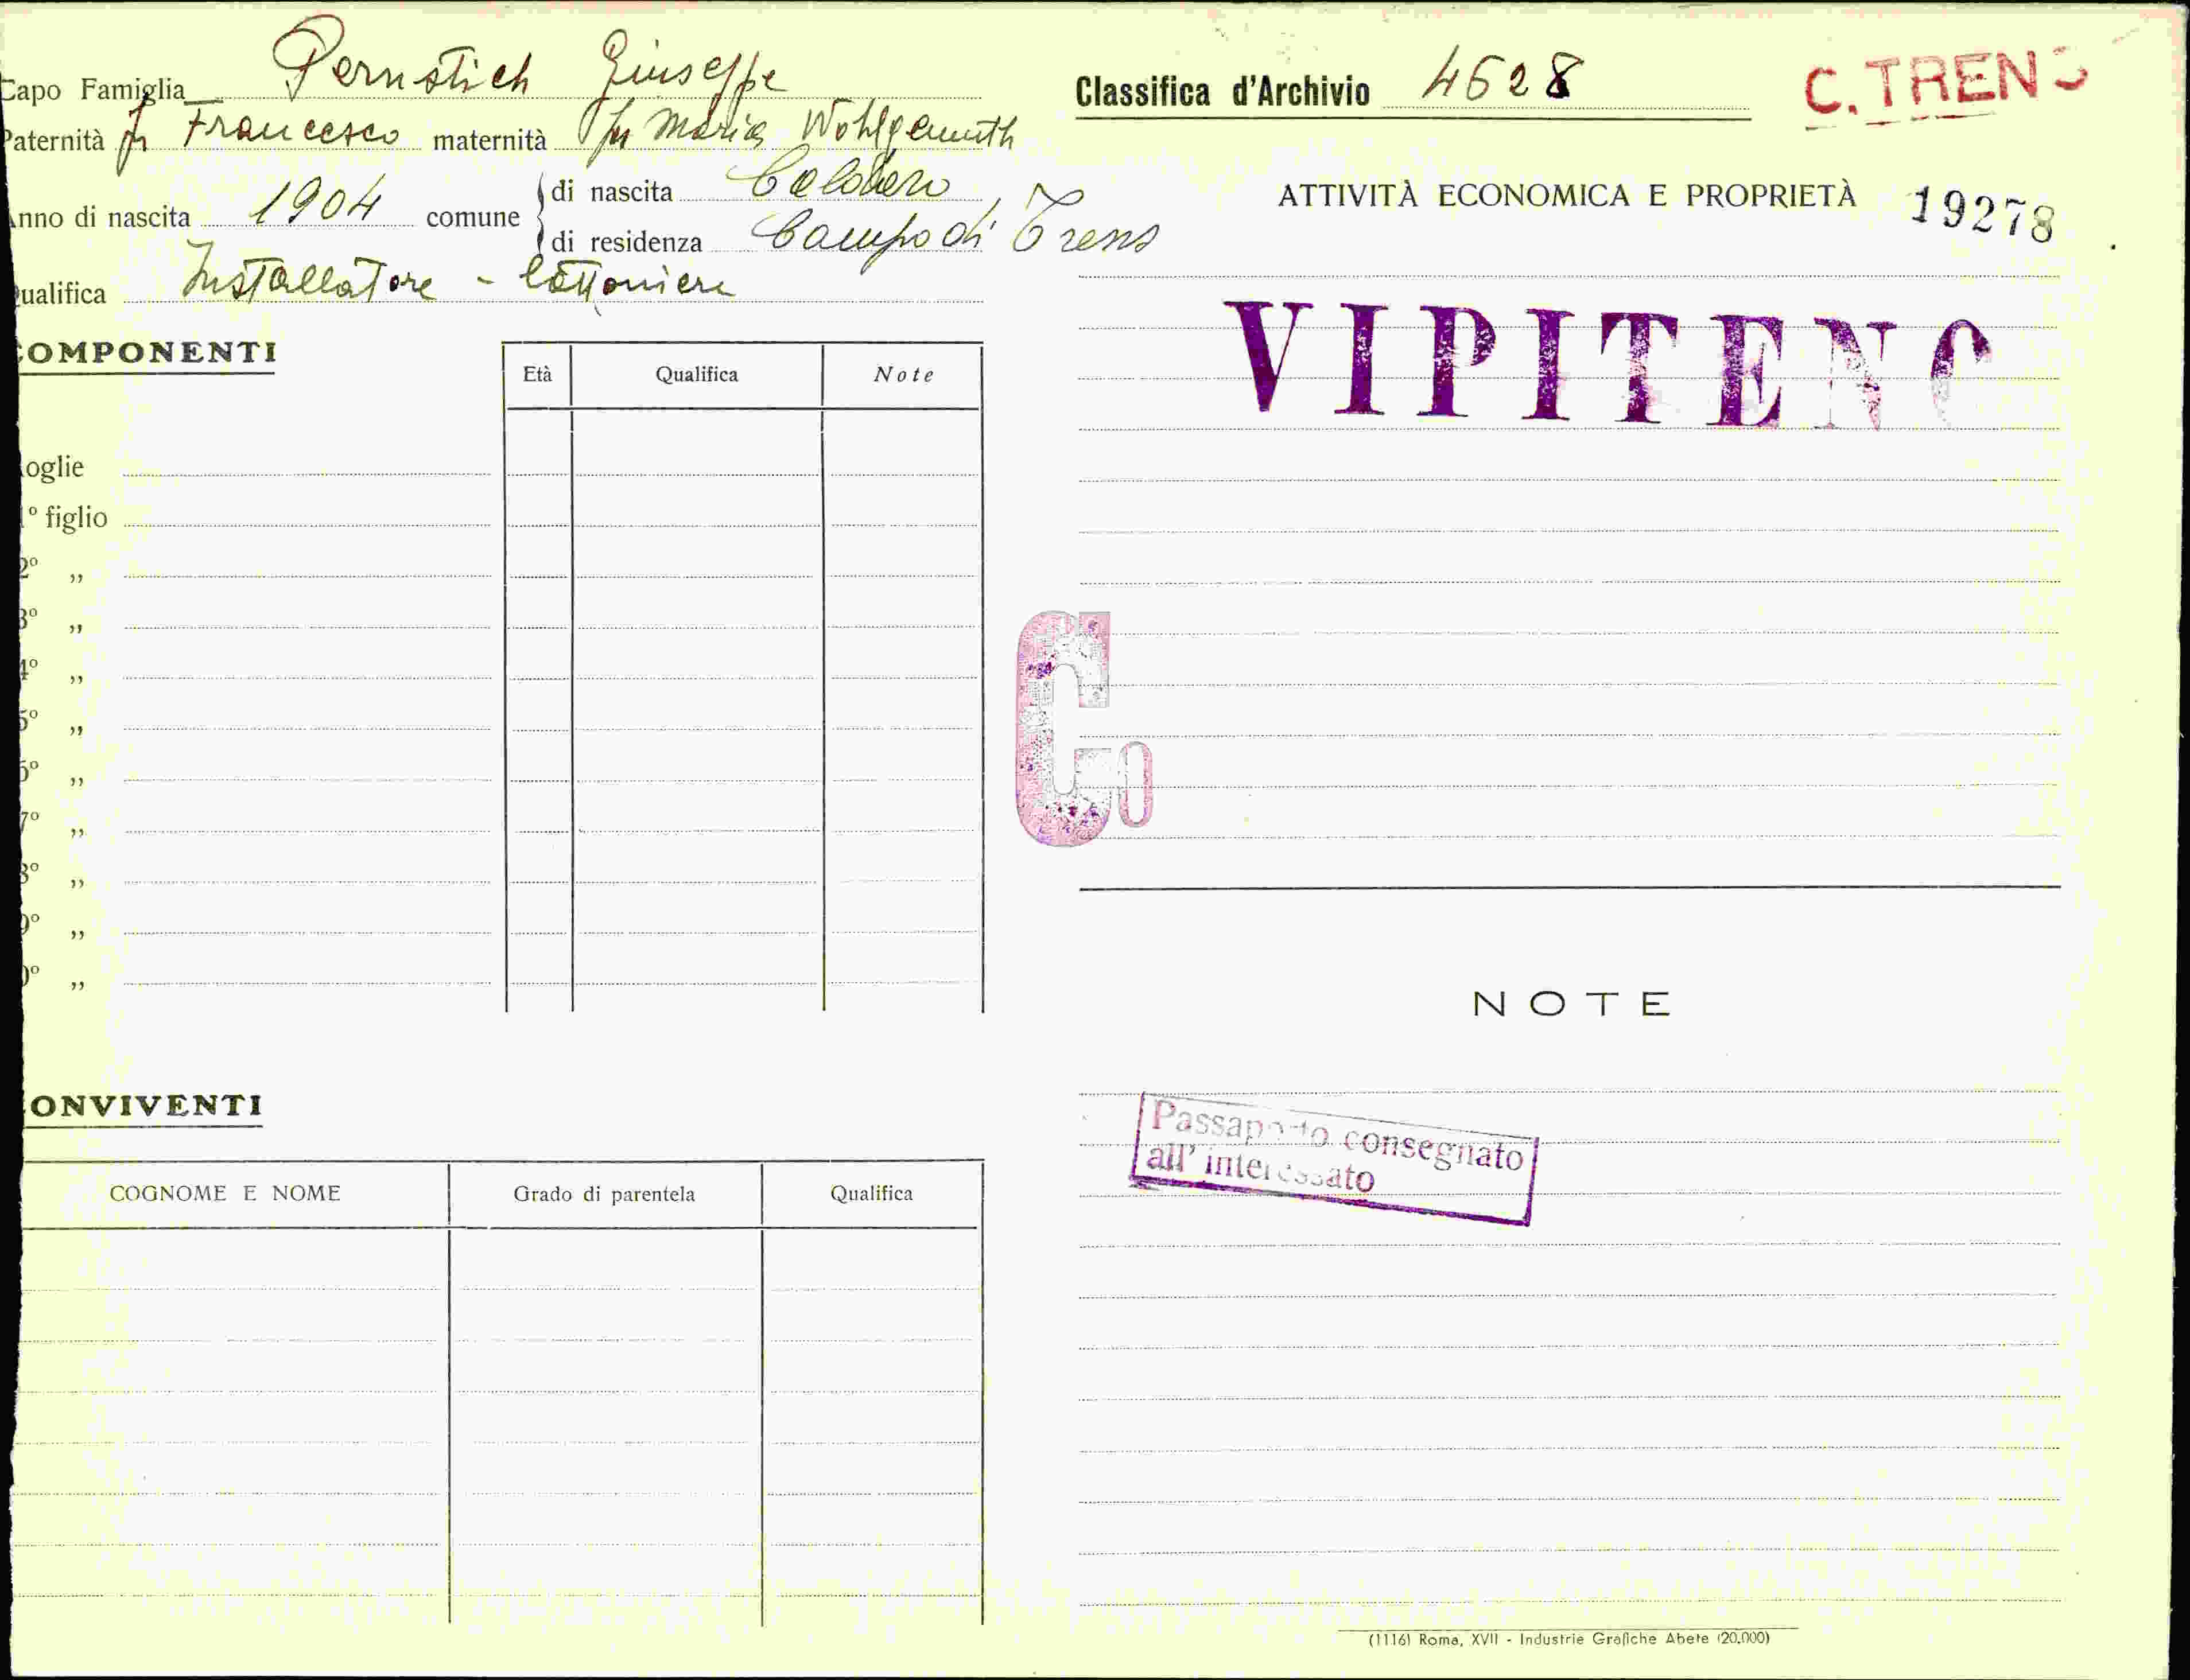 Capo Famiglia Pernstich Giuseppe
Paternità fu Francesco maternità fu Maria Wohlgemuth
Anno di nascita 1904 comune di nascita Caldaro
di residenza Campo di Trens
Qualifica Installatore - lattoniere
COMPONENTI
Età Qualifica Note
oglie
1° figlio
2° „
3° „
4° „
5° „
6° „
7° „
8° „
9° „
0° „
ONVIVENTI
COGNOME E NOME Grado di parentela Qualifica
Classifica d'Archivio 4628
C. TRENS
ATTIVITÀ ECONOMICA E PROPRIETÀ 19278
VIPITENO
Co
NOTE
Passaporto consegnato
all' interessato
(1116) Roma, XVII - Industrie Grafiche Abete (20.000)